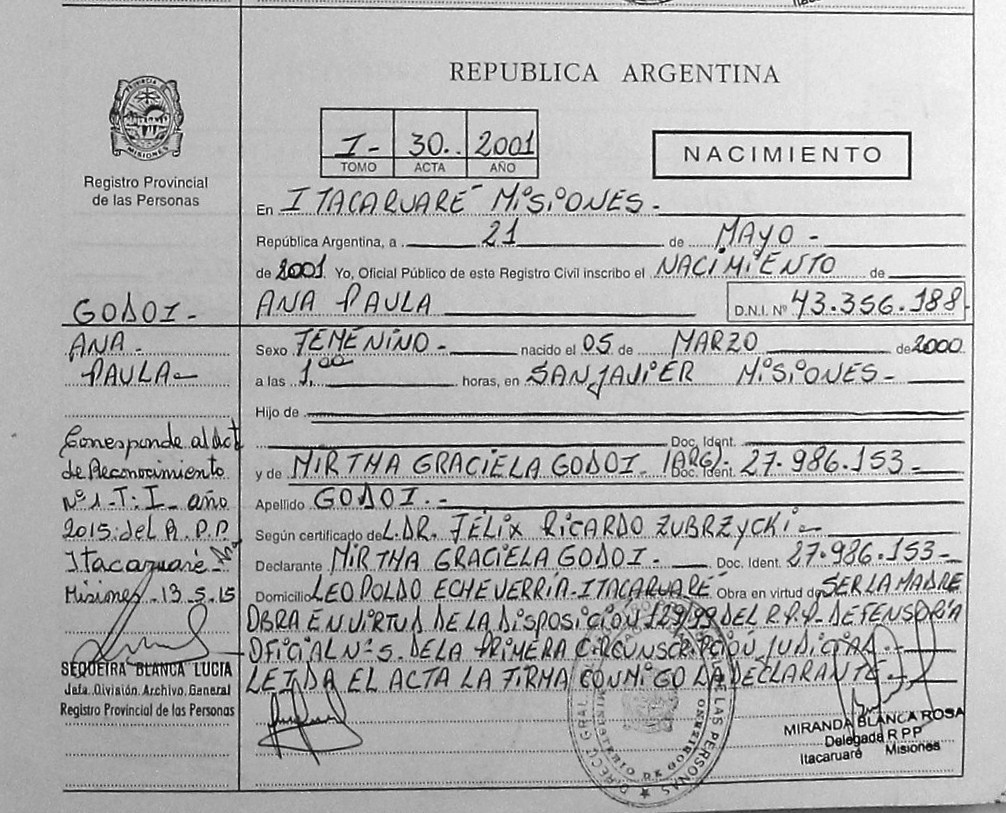 REPUBLICA ARGENTINA
PROVINCIA DE MISIONES
Registro Provincial
de las Personas
I- 30.. 2001
TOMO ACTA AÑO
NACIMIENTO
En ITACARUARÉ MISIONES-
República Argentina, a 21 de MAYO-
de 2001 Yo, Oficial Público de este Registro Civil inscribo el NACIMIENTO de
ANA PAULA D.N.I. Nº 43.356.188-
GODOI-
ANA-
PAULA-
Sexo FEMENINO- nacido el 05 de MARZO de 2000
a las 1,00 horas, en SAN JAVIER MISIONES-
Hijo de
Doc. Ident.
y de MIRTHA GRACIELA GODOI. (ARG). Doc. Ident. 27.986.153-
Apellido GODOI.-
Según certificado del DR. FÉLIX RICARDO ZUBRZYCKI-
Declarante MIRTHA GRACIELA GODOI- Doc. Ident. 27.986.153-
Domicilio LEOPOLDO ECHEVERRÍA-ITACARUARÉ Obra en virtud de SER LA MADRE
OBRA EN VIRTUD DE LA DISPOSICIÓN 129/99 DEL R.P.P. DEFENSORÍA
OFICIAL Nº 5. DE LA PRIMERA CIRCUNSCRIPCIÓN JUDICIAL.-
LEIDA EL ACTA LA FIRMA CONMIGO LA DECLARANTE-
Corresponde al Act
de Reconocimiento
Nº 1-T: I- año
2015 del R.P.P.
Itacaruaré-
Misiones-13-5-15
SEQUEIRA BLANCA LUCIA
Jefa. División. Archivo. General
Registro Provincial de las Personas
MIRANDA BLANCA ROSA
Delegada R PP
Itacaruaré Misiones